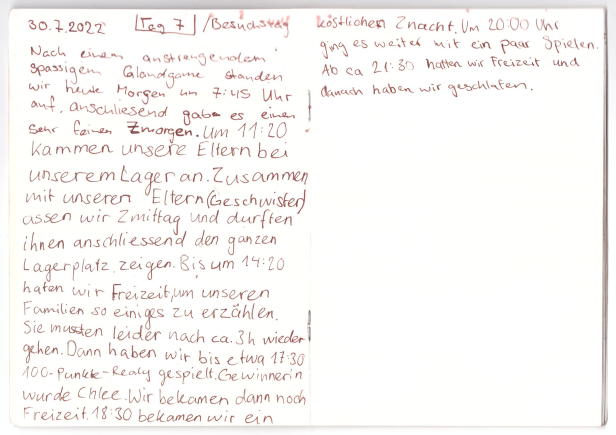 30.7.2022 Tag 7 / Besuchstag
Nach einem anstrengendem
spassigem Gländgame standen
wir heute Morgen um 7:45 Uhr
auf, anschliesend gab es einen
sehr feinen Zmorgen. Um 11:20
kammen unsere Eltern bei
unserem Lager an. Zusammen
mit unseren Eltern (Geschwister)
assen wir Zmittag und durften
ihnen anschliessend den ganzen
Lagerplatz zeigen. Bis um 14:20
haten wir Freizeit, um unseren
Familien so einiges zu erzählen.
Sie mussten leider nach ca. 3h wieder
gehen. Dann haben wir bis etwa 17:30
100-Punkte-Realy gespielt. Gewinnerin
wurde Chlee. Wir bekamen dann noch
Freizeit. 18:30 bekamen wir ein
köstlichen Znacht. Um 20:00 Uhr
ging es weiter mit ein paar Spielen.
Ab ca 21:30 hatten wir Freizeit und
danach haben wir geschlafen.